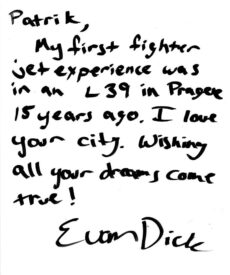 Patrik,
My first fighter
jet experience was
in an L39 in Prague
15 years ago. I love
your city. Wishing
all your dreams come
true!
Evan Dick